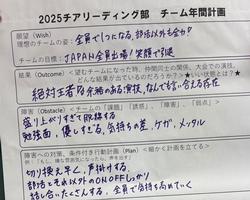 2025チアリーディング部 チーム年間計画
願望(Wish)
理想のチームの姿: 全員で1つになる、部活以外も全力!
チームの目標: JAPAN全員出場/笑顔で引退
結果(Outcome) <望むチームになった時、仲間同士の関係、大会での演技、
どんな結果が出ているだろうか?>★いい状態とは?★
絶対王者、余裕のある演技、なんでも言い合える存在
障害(Obstacle) <チームの「課題」「誘惑」「障害」「弱点」>
盛り上がりすぎて脱線する
勉強面、優しすぎる、気持ちの差、ケガ、メンタル
障害への対策、条件付き行動計画(Plan) <細かく計画を立てる>
切り換え早く、声掛けする、
部活とそれ以外のON OFFしっかり
話し合いたくさんする、全員で気持ち高めていく